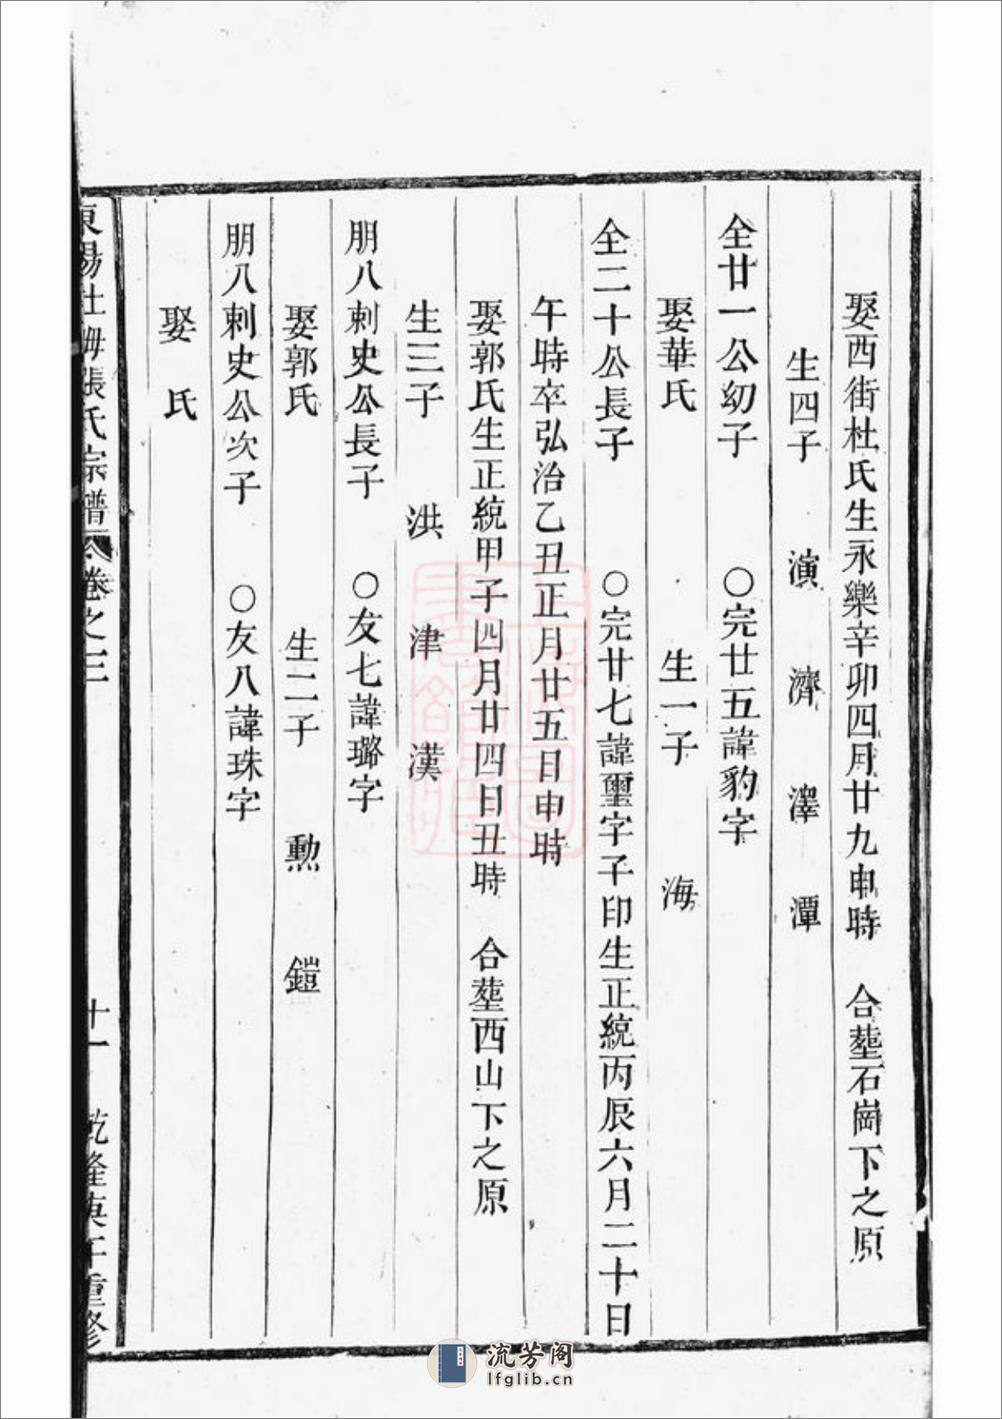 娶西街杜氏生永樂辛卯四月廿九申時　合塟石崗下之原
生四子　演　濟　澤　潭
全廿一公幼子　○完廿五諱豹字
娶華氏　生一子　海
全二十公長子　○完廿七諱璽字子印生正統丙辰六月二十日
午時卒弘治乙丑正月廿五日申時
娶郭氏生正統甲子四月廿四日丑時　合塟西山下之原
生三子　洪　津　漢
朋八刺史公長子　○友七諱璐字
娶郭氏　生二子　勲　鎧
朋八刺史公次子　○友八諱珠字
娶　氏
東陽杜姆張氏宗譜　卷之三　十一　乾隆庚午重修
流芳阁
lfglib.cn